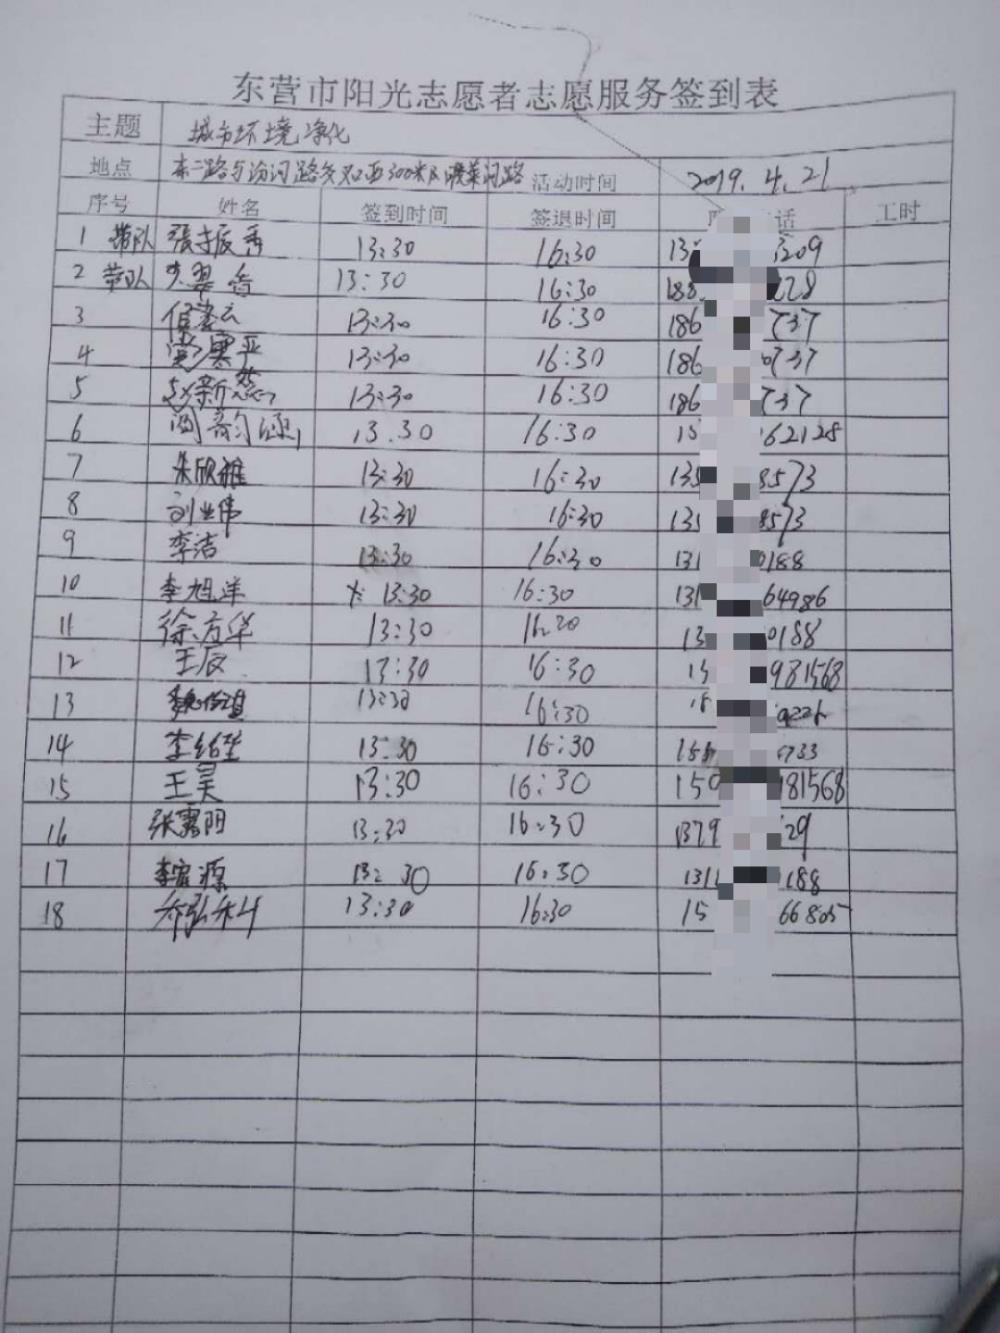 东营市阳光志愿者志愿服务签到表
主题 城市环境净化
地点 东二路与汾河路 西300米 路 活动时间 2019.4.21
序号 姓名 签到时间 签退时间 话 工时
1 带队 張振秀 13:30 16:30 13 209
2 带队 翠香 13:30 16:30 188 228
3 云 13:30 16:30 186 737
4 平 13:30 16:30 186 0737
5 赵新 13:30 16:30 186 737
6 韵 13.30 16:30 15 162128
7 朱欣雅 13:30 16:30 135 8573
8 刘业伟 13:30 16:30 135 8573
9 李洁 13:30 16:30 131 0188
10 李旭洋 13:30 16:30 131 64986
11 徐方华 13:30 16:30 13 0188
12 王辰 13:30 16:30 15 981568
13 魏 13:30 16:30 15 9226
14 李 13:30 16:30 156 733
15 王昊 13:30 16:30 150 181568
16 张露阳 13:30 16:30 1379 29
17 李宸源 13:30 16:30 131 188
18 乔弘 13:30 16:30 15 66805